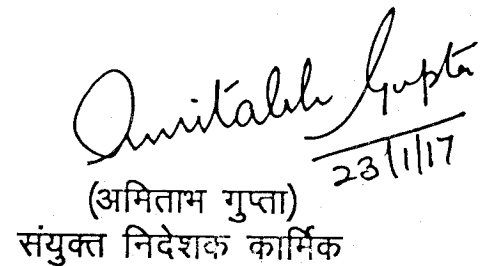 Amitabh Gupta
23/1/17
(अमिताभ गुप्ता)
संयुक्त निदेशक कार्मिक